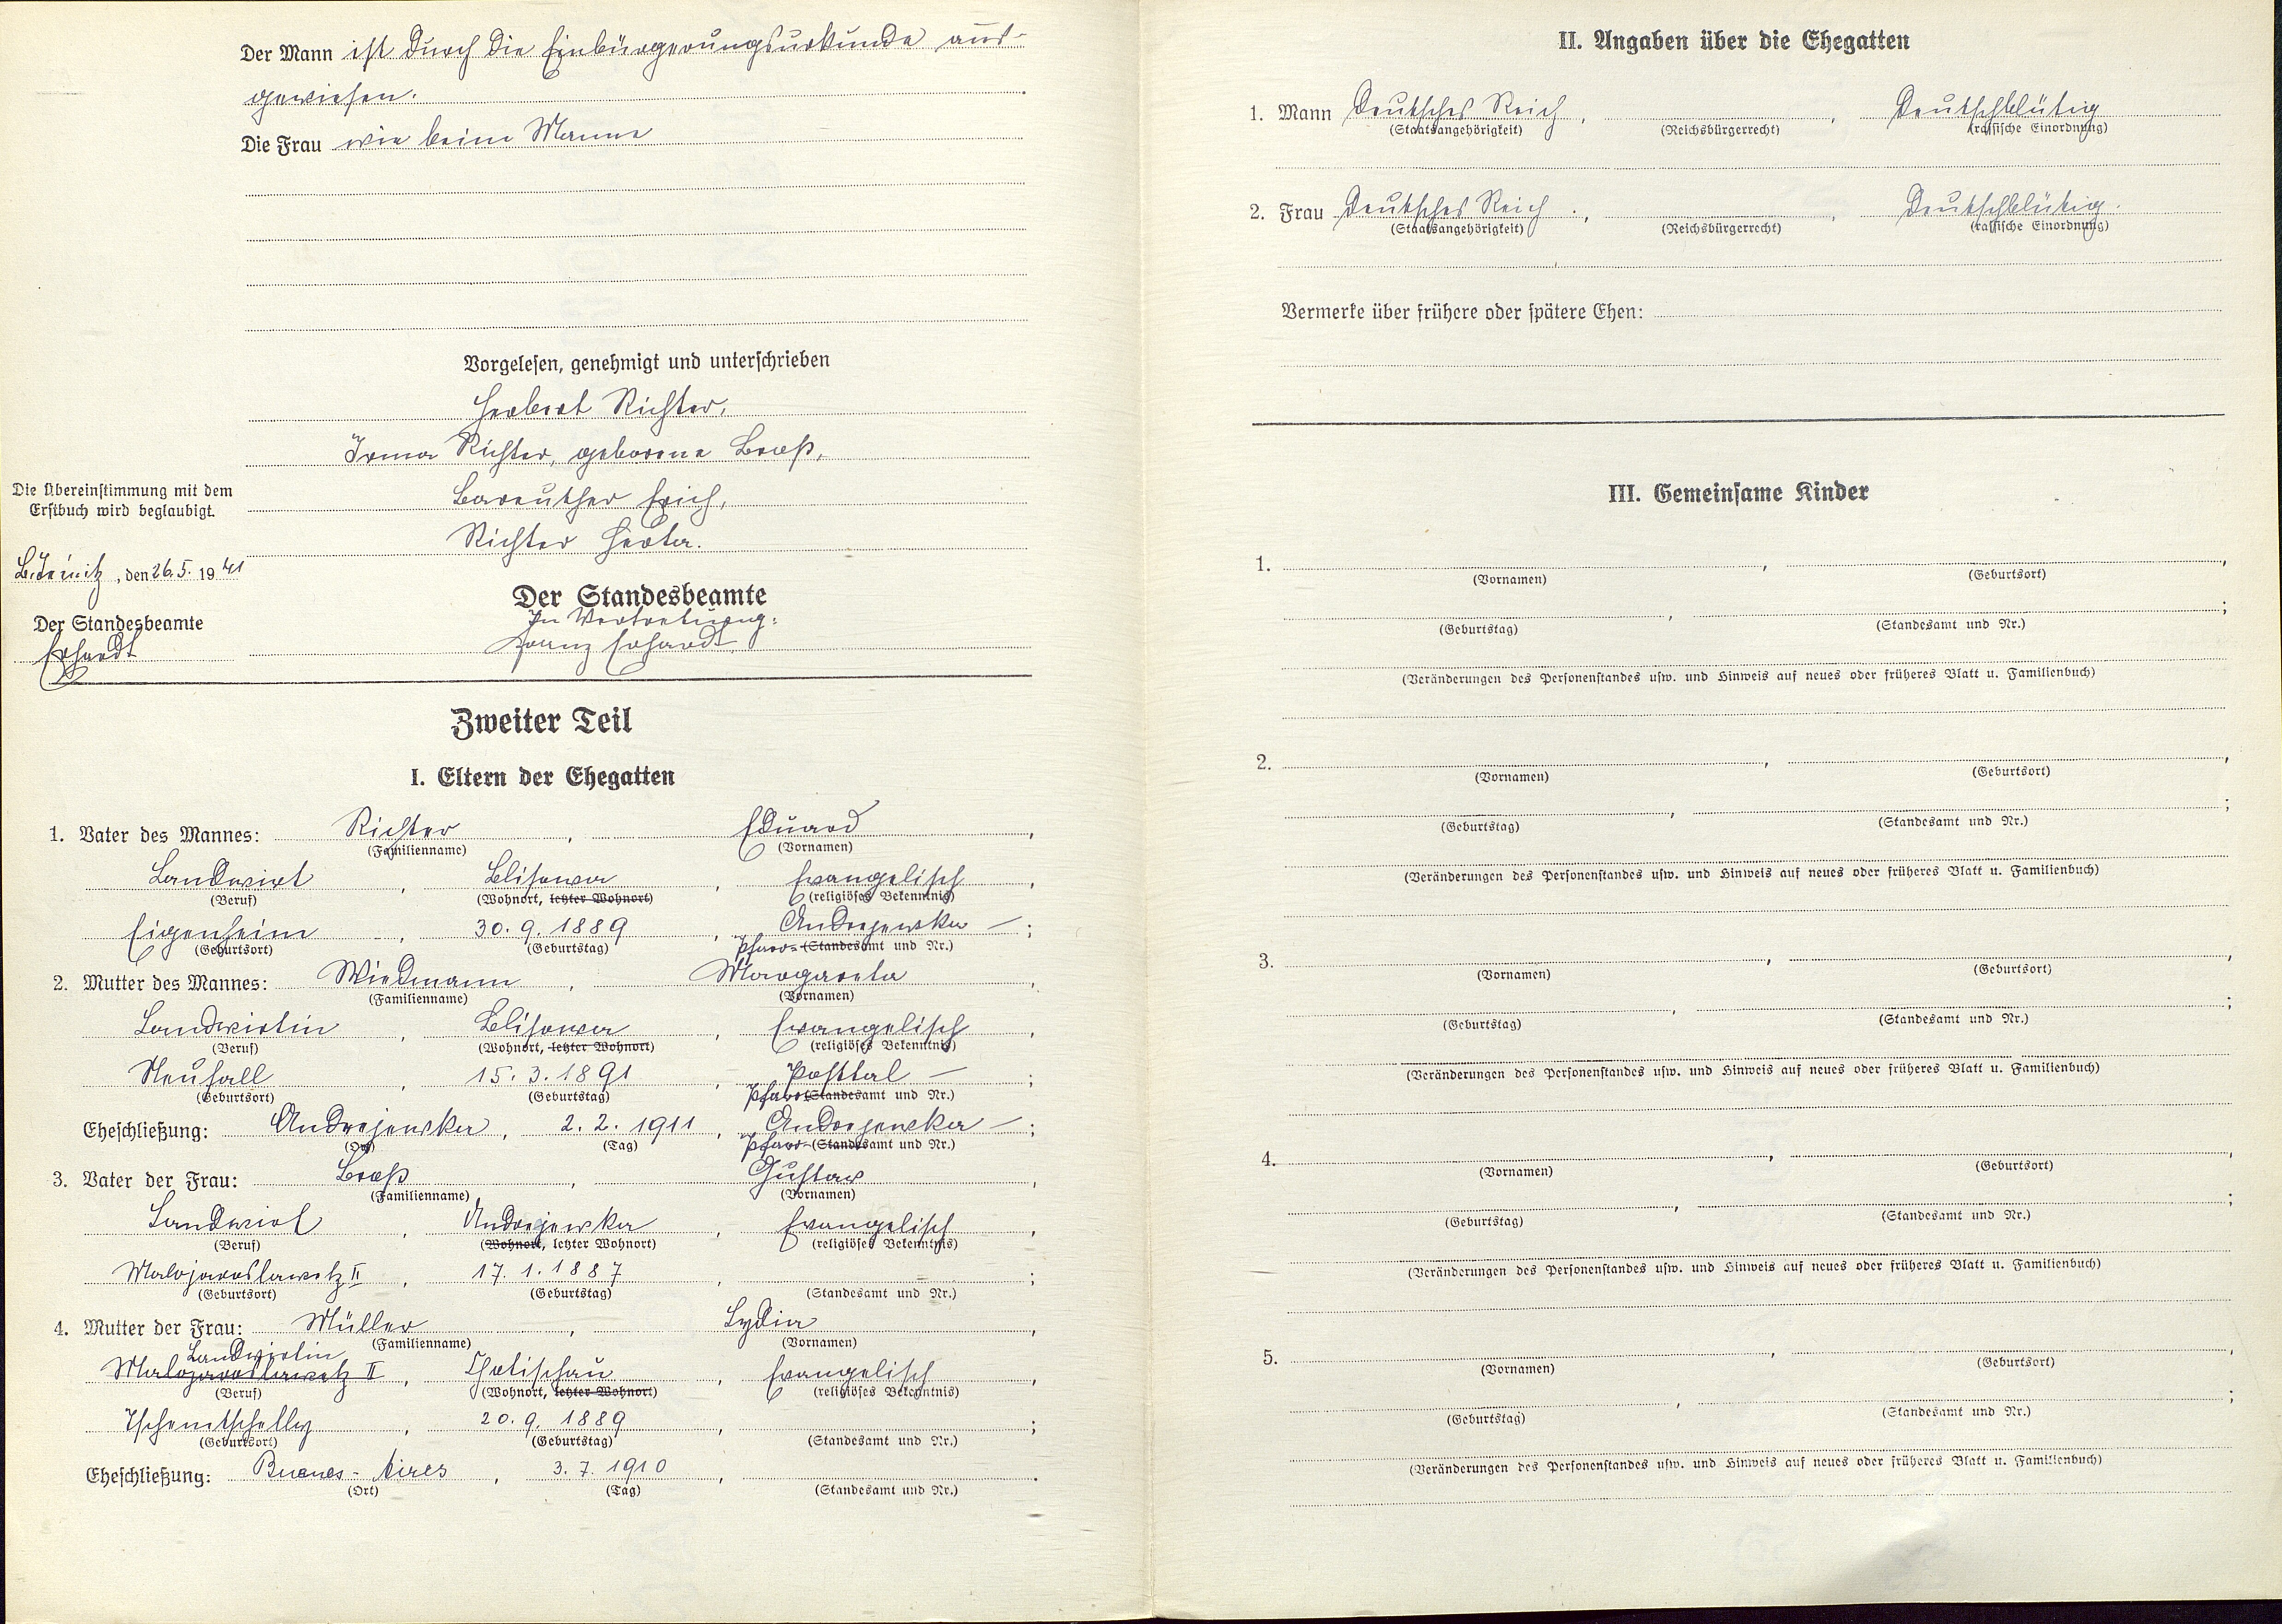 Der Mann ist durch die Einbürgerungsurkunde aus-
gewiesen.
Die Frau wie beim Manne
Vorgelesen, genehmigt und unterschrieben
Herbert Richter,
Irma Richter, geborene Broß,
Bareuther Erich,
Richter Herta.
Die Übereinstimmung mit dem
Erstbuch wird beglaubigt.
, den 26.5. 1941
Der Standesbeamte
Erhardt
Der Standesbeamte
In Vertretung:
Franz Erhardt
Zweiter Teil
I. Eltern der Ehegatten
1. Vater des Mannes: Richter, Eduard,
(Familienname) (Vornamen)
Landwirt, Elisowa, Evangelisch,
(Beruf) (Wohnort, letzter Wohnort) (religiöses Bekenntnis)
Eigenheim, 30.9.1889, Andrejewka —;
(Geburtsort) (Geburtstag) Pfarr- (Standesamt und Nr.)
2. Mutter des Mannes: Wiedmann, Margareta,
(Familienname) (Vornamen)
Landwirtin, Elisowa, Evangelisch,
(Beruf) (Wohnort, letzter Wohnort) (religiöses Bekenntnis)
Neufall, 15.3.1891, Posttal —;
(Geburtsort) (Geburtstag) Pfarr (Standesamt und Nr.)
Eheschließung: Andrejewka, 2.2.1911, Andrejewka —;
(Ort) (Tag) Pfarr- (Standesamt und Nr.)
3. Vater der Frau: Broß, Gustav,
(Familienname) (Vornamen)
Landwirt, Andrejewka, Evangelisch,
(Beruf) (Wohnort, letzter Wohnort) (religiöses Bekenntnis)
Malojaroslawetz II, 17.1.1887,;
(Geburtsort) (Geburtstag) (Standesamt und Nr.)
4. Mutter der Frau: Müller, Lydia,
(Familienname) (Vornamen)
Landwirtin
Malojaroslawetz II, Chotischau, Evangelisch,
(Beruf) (Wohnort, letzter Wohnort) (religiöses Bekenntnis)
Tschemtschelly, 20.9.1889,;
(Geburtsort) (Geburtstag) (Standesamt und Nr.)
Eheschließung: Buenes-Aires, 3.7.1910,.
(Ort) (Tag) (Standesamt und Nr.)
II. Angaben über die Ehegatten
1. Mann Deutsches Reich,, Deutschblütig
(Staatsangehörigkeit) (Reichsbürgerrecht) (rassische Einordnung)
2. Frau Deutsches Reich.,, Deutschblütig.
(Staatsangehörigkeit) (Reichsbürgerrecht) (rassische Einordnung)
Vermerke über frühere oder spätere Ehen:
III. Gemeinsame Kinder
1.,,
(Vornamen) (Geburtsort)
,;
(Geburtstag) (Standesamt und Nr.)
(Veränderungen des Personenstandes usw. und Hinweis auf neues oder früheres Blatt u. Familienbuch)
2.,,
(Vornamen) (Geburtsort)
,;
(Geburtstag) (Standesamt und Nr.)
(Veränderungen des Personenstandes usw. und Hinweis auf neues oder früheres Blatt u. Familienbuch)
3.,,
(Vornamen) (Geburtsort)
,;
(Geburtstag) (Standesamt und Nr.)
(Veränderungen des Personenstandes usw. und Hinweis auf neues oder früheres Blatt u. Familienbuch)
4.,,
(Vornamen) (Geburtsort)
,;
(Geburtstag) (Standesamt und Nr.)
(Veränderungen des Personenstandes usw. und Hinweis auf neues oder früheres Blatt u. Familienbuch)
5.,,
(Vornamen) (Geburtsort)
,;
(Geburtstag) (Standesamt und Nr.)
(Veränderungen des Personenstandes usw. und Hinweis auf neues oder früheres Blatt u. Familienbuch)